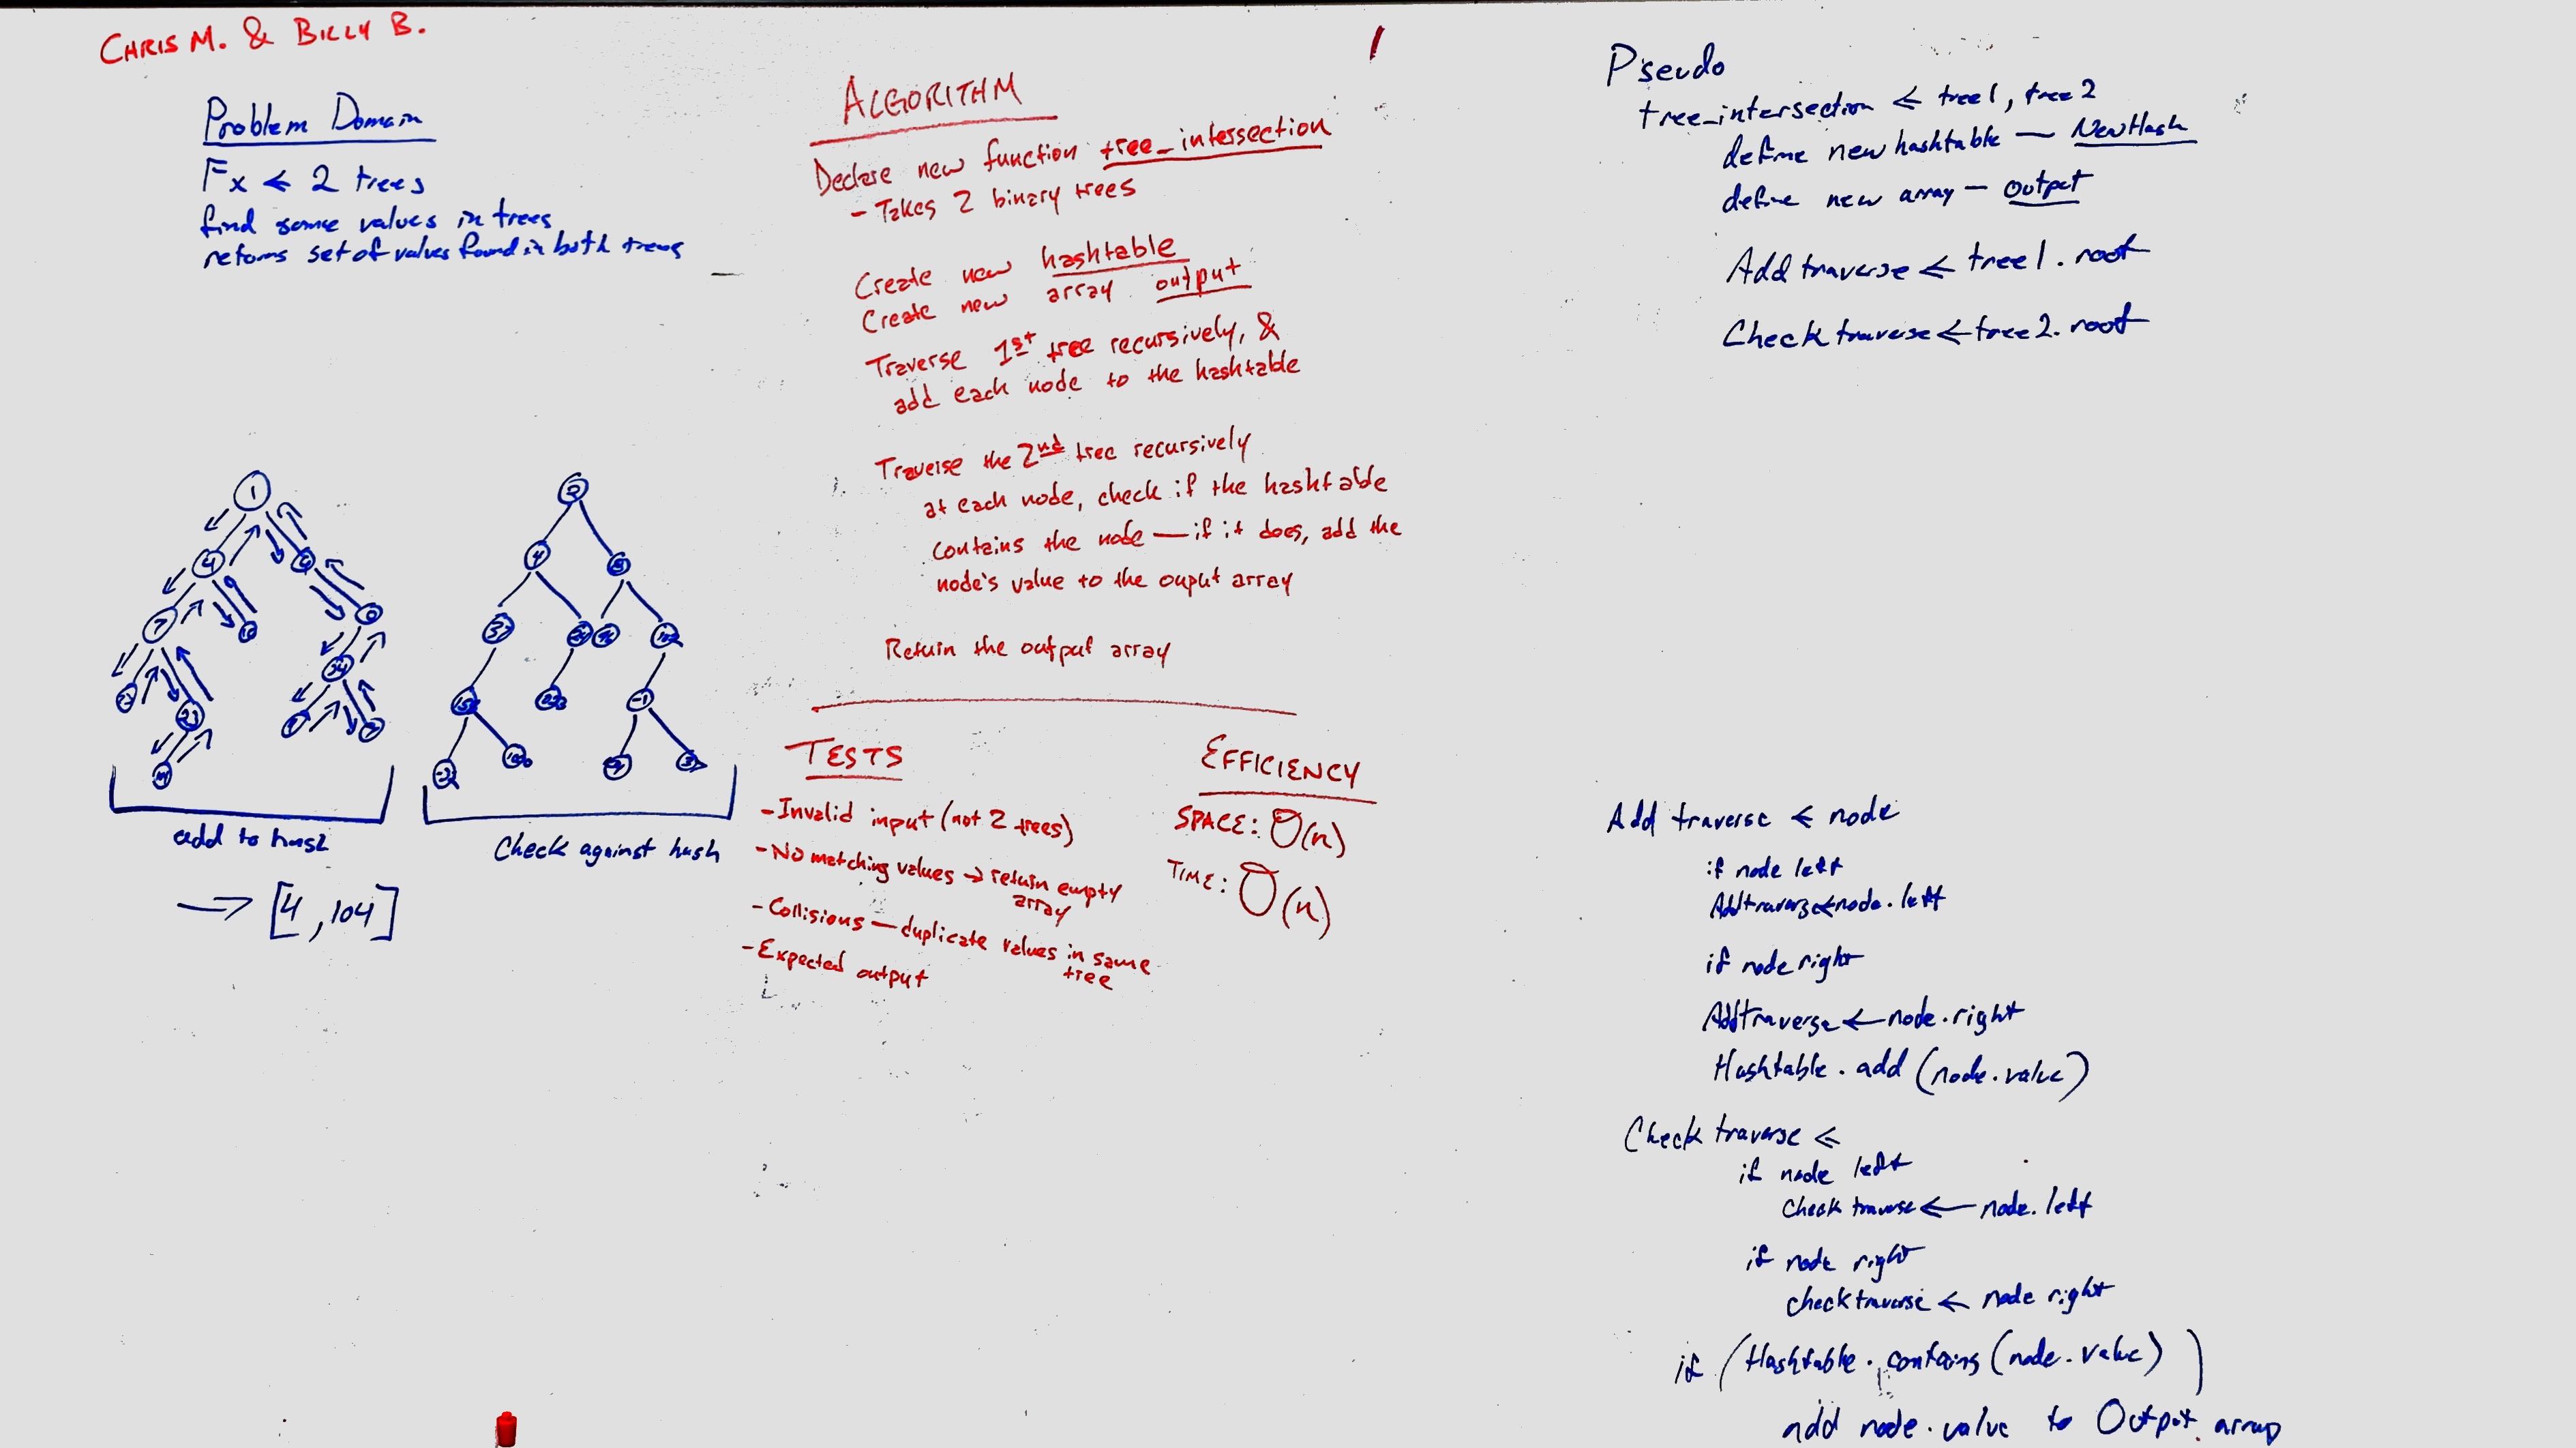 CHRIS M. & BILLY B.
Problem Domain
Fx ← 2 trees
find same values in trees
returns set of values found in both trees
1
4
7
4
add to hash
Check against hash
→ [4, 104]
ALGORITHM
Declare new function tree_intersection
- Takes 2 binary trees
Create new hashtable
Create new array output
Traverse 1st tree recursively, &
add each node to the hashtable
Traverse the 2nd tree recursively
at each node, check if the hashtable
contains the node — if it does, add the
node's value to the ouput array
Return the output array
TESTS
- Invalid input (not 2 trees)
- No matching values → return empty
array
- Collisions — duplicate values in same
tree
- Expected output
EFFICIENCY
SPACE: O(n)
TIME: O(n)
Pseudo
tree_intersection ← tree1, tree2
define new hashtable — NewHash
define new array — output
Add traverse ← tree1.root
Check traverse ← tree2.root
Add traverse ← node
if node left
Addtraverse ← node.left
if node right
Addtraverse ← node.right
Hashtable.add(node.value)
Check traverse ←
if node left
Check traverse ← node.left
if node right
check traverse ← node right
if (Hashtable.contains(node.value))
add node.value to Output array